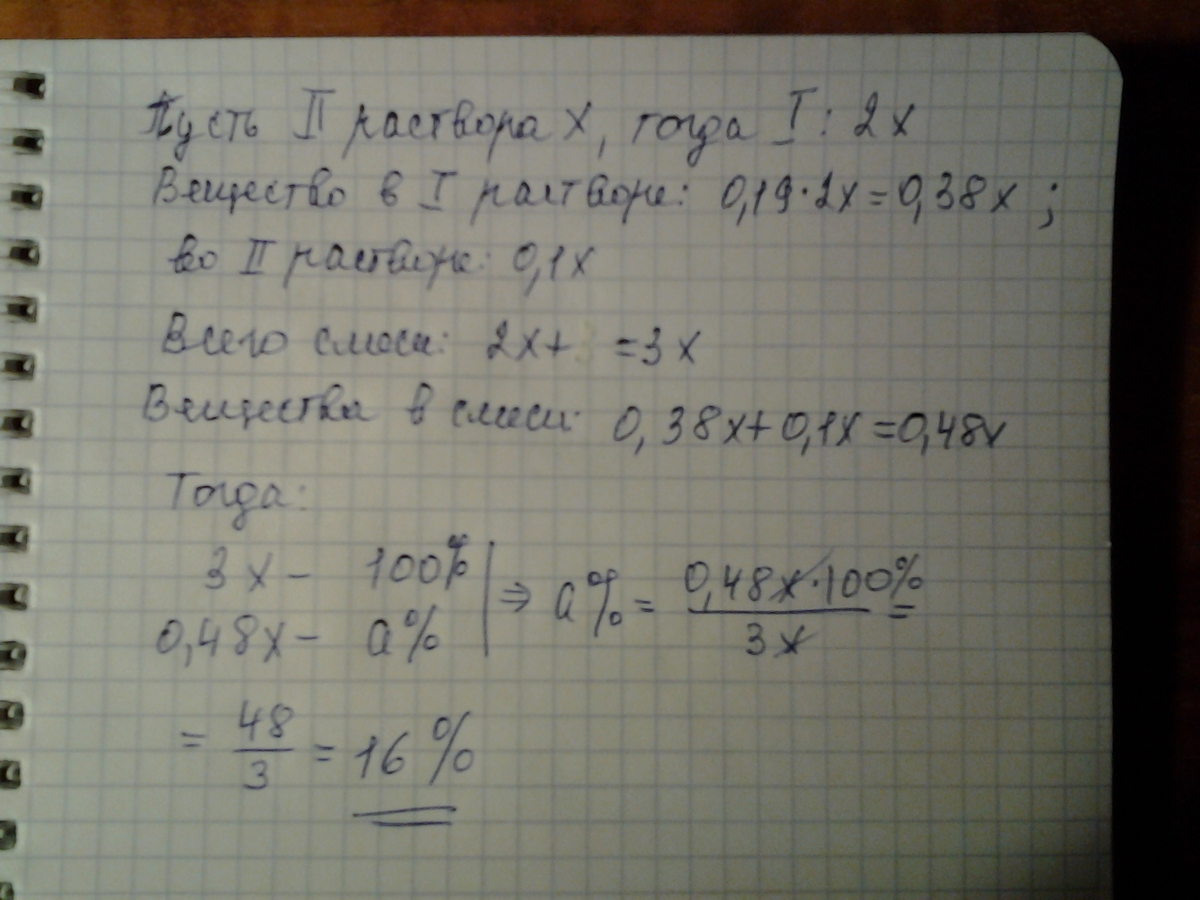 Пусть II раствора x, тогда I: 2x
Вещество в I растворе: 0,19·2x=0,38x;
во II растворе: 0,1x
Всего смеси: 2x+ =3x
Вещества в смеси: 0,38x+0,1x=0,48x
Тогда:
3x – 100%
0,48x – a%
⇒ a% = 0,48x·100% / 3x =
= 48/3 = 16%